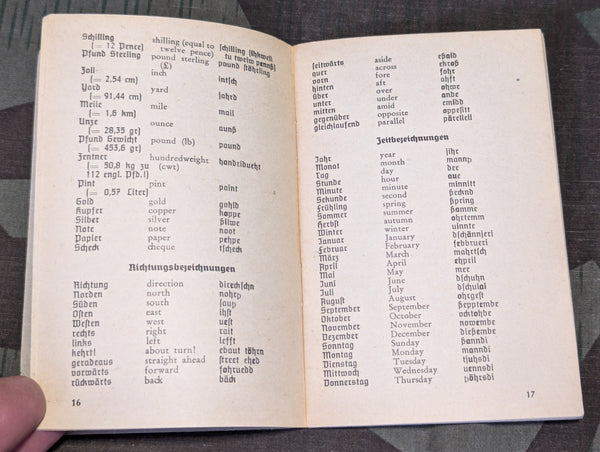 Schilling shilling (equal to schilling (ihkwell
(= 12 Pence) twelve pence) tu twelw pennß)
Pfund Sterling pound sterling pound ßtöhrling
(£)
Zoll inch intsch
(= 2,54 cm)
Yard yard jahrd
(= 91,44 cm)
Meile mile mail
(= 1,6 km)
Unze ounce aunß
(= 28,35 gr)
Pfund Gewicht pound (lb) pound
(= 453,6 gr)
Zentner hundredweight
(= 50,8 kg zu (cwt)
112 engl. Pfd.)
Pint pint paint
(= 0,57 Liter)
Gold gold gohld
Kupfer copper koppe
Silber silver ßilwe
Note note noot
Papier paper pehpe
Scheck cheque tscheck
Richtungsbezeichnungen
Richtung direction direckschn
Norden north nohrþ
Süden south ßauþ
Osten east ihst
Westen west uest
rechts right rait
links left lefft
kehrt! about turn! ebaut töhrn
geradeaus straight ahead ßtreet ehed
vorwärts forward fohruedd
rückwärts back bäck
16
seitwärts aside eßaid
quer across ekroß
vorn fore fohr
hinten aft ahft
über over ohwe
unter under ande
mitten amid emidd
gegenüber opposite oppesitt
gleichlaufend parallel pärellell
Zeitbezeichnungen
Jahr year jihr
Monat month mannþ
Tag day dee
Stunde hour aue
Minute minute minnitt
Sekunde second ßecknd
Frühling spring ßpring
Sommer summer ßamme
Herbst autumn ohrtemm
Winter winter uinnte
Januar January dschännjeri
Februar February febbrueri
März March mahrtsch
April April ehpril
Mai May mee
Juni June dschuhn
Juli July dschulai
August August ohrgest
September September ßepptembe
Oktober October ocktohbe
November November nowembe
Dezember December dießembe
Sonntag Sunday ßanndi
Montag Monday manndi
Dienstag Tuesday tjuhsdi
Mittwoch Wednesday uennsdi
Donnerstag Thursday þöhrsdi
17